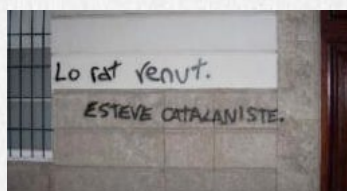 Lo rat venut.
ESTEVE CATALANISTE.